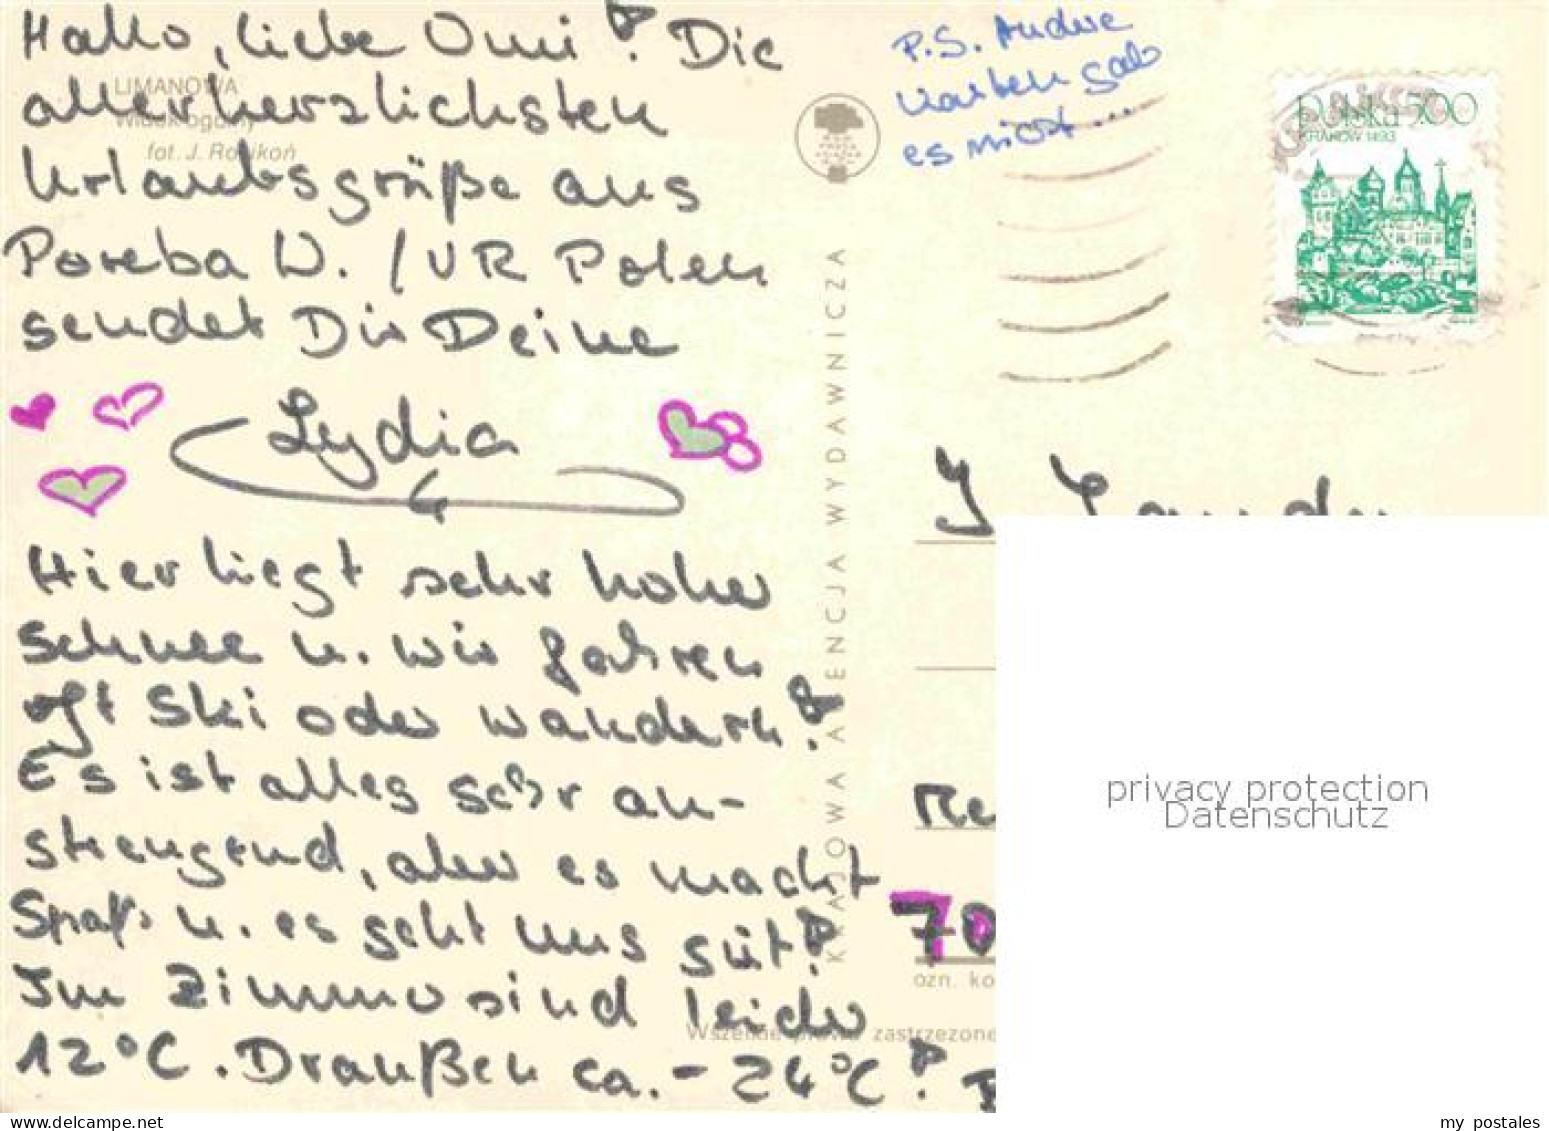 Hallo, liebe Omi! Die
allerherzlichsten
Urlaubsgrüße aus
Poreba W. / VR Polen
sendet Dir Deine
Lydia
Hier liegt sehr hoher
Schnee u. wir fahren
oft Ski oder wandern!
Es ist alles sehr an-
strengend, aber es macht
Spaß u. es geht uns gut!
Im Zimmer sind leider
12°C. Draußen ca. -24°C!
LIMANOWA
Widok ogólny
fot. J.
KRAJOWA AGENCJA WYDAWNICZA
P.S. Andere
Karten gab
es nicht...
Polska 500
KRAKÓW 1493
70
ozn. ko
Wszelkie prawa zastrzeżone
privacy protection
Datenschutz
my postales